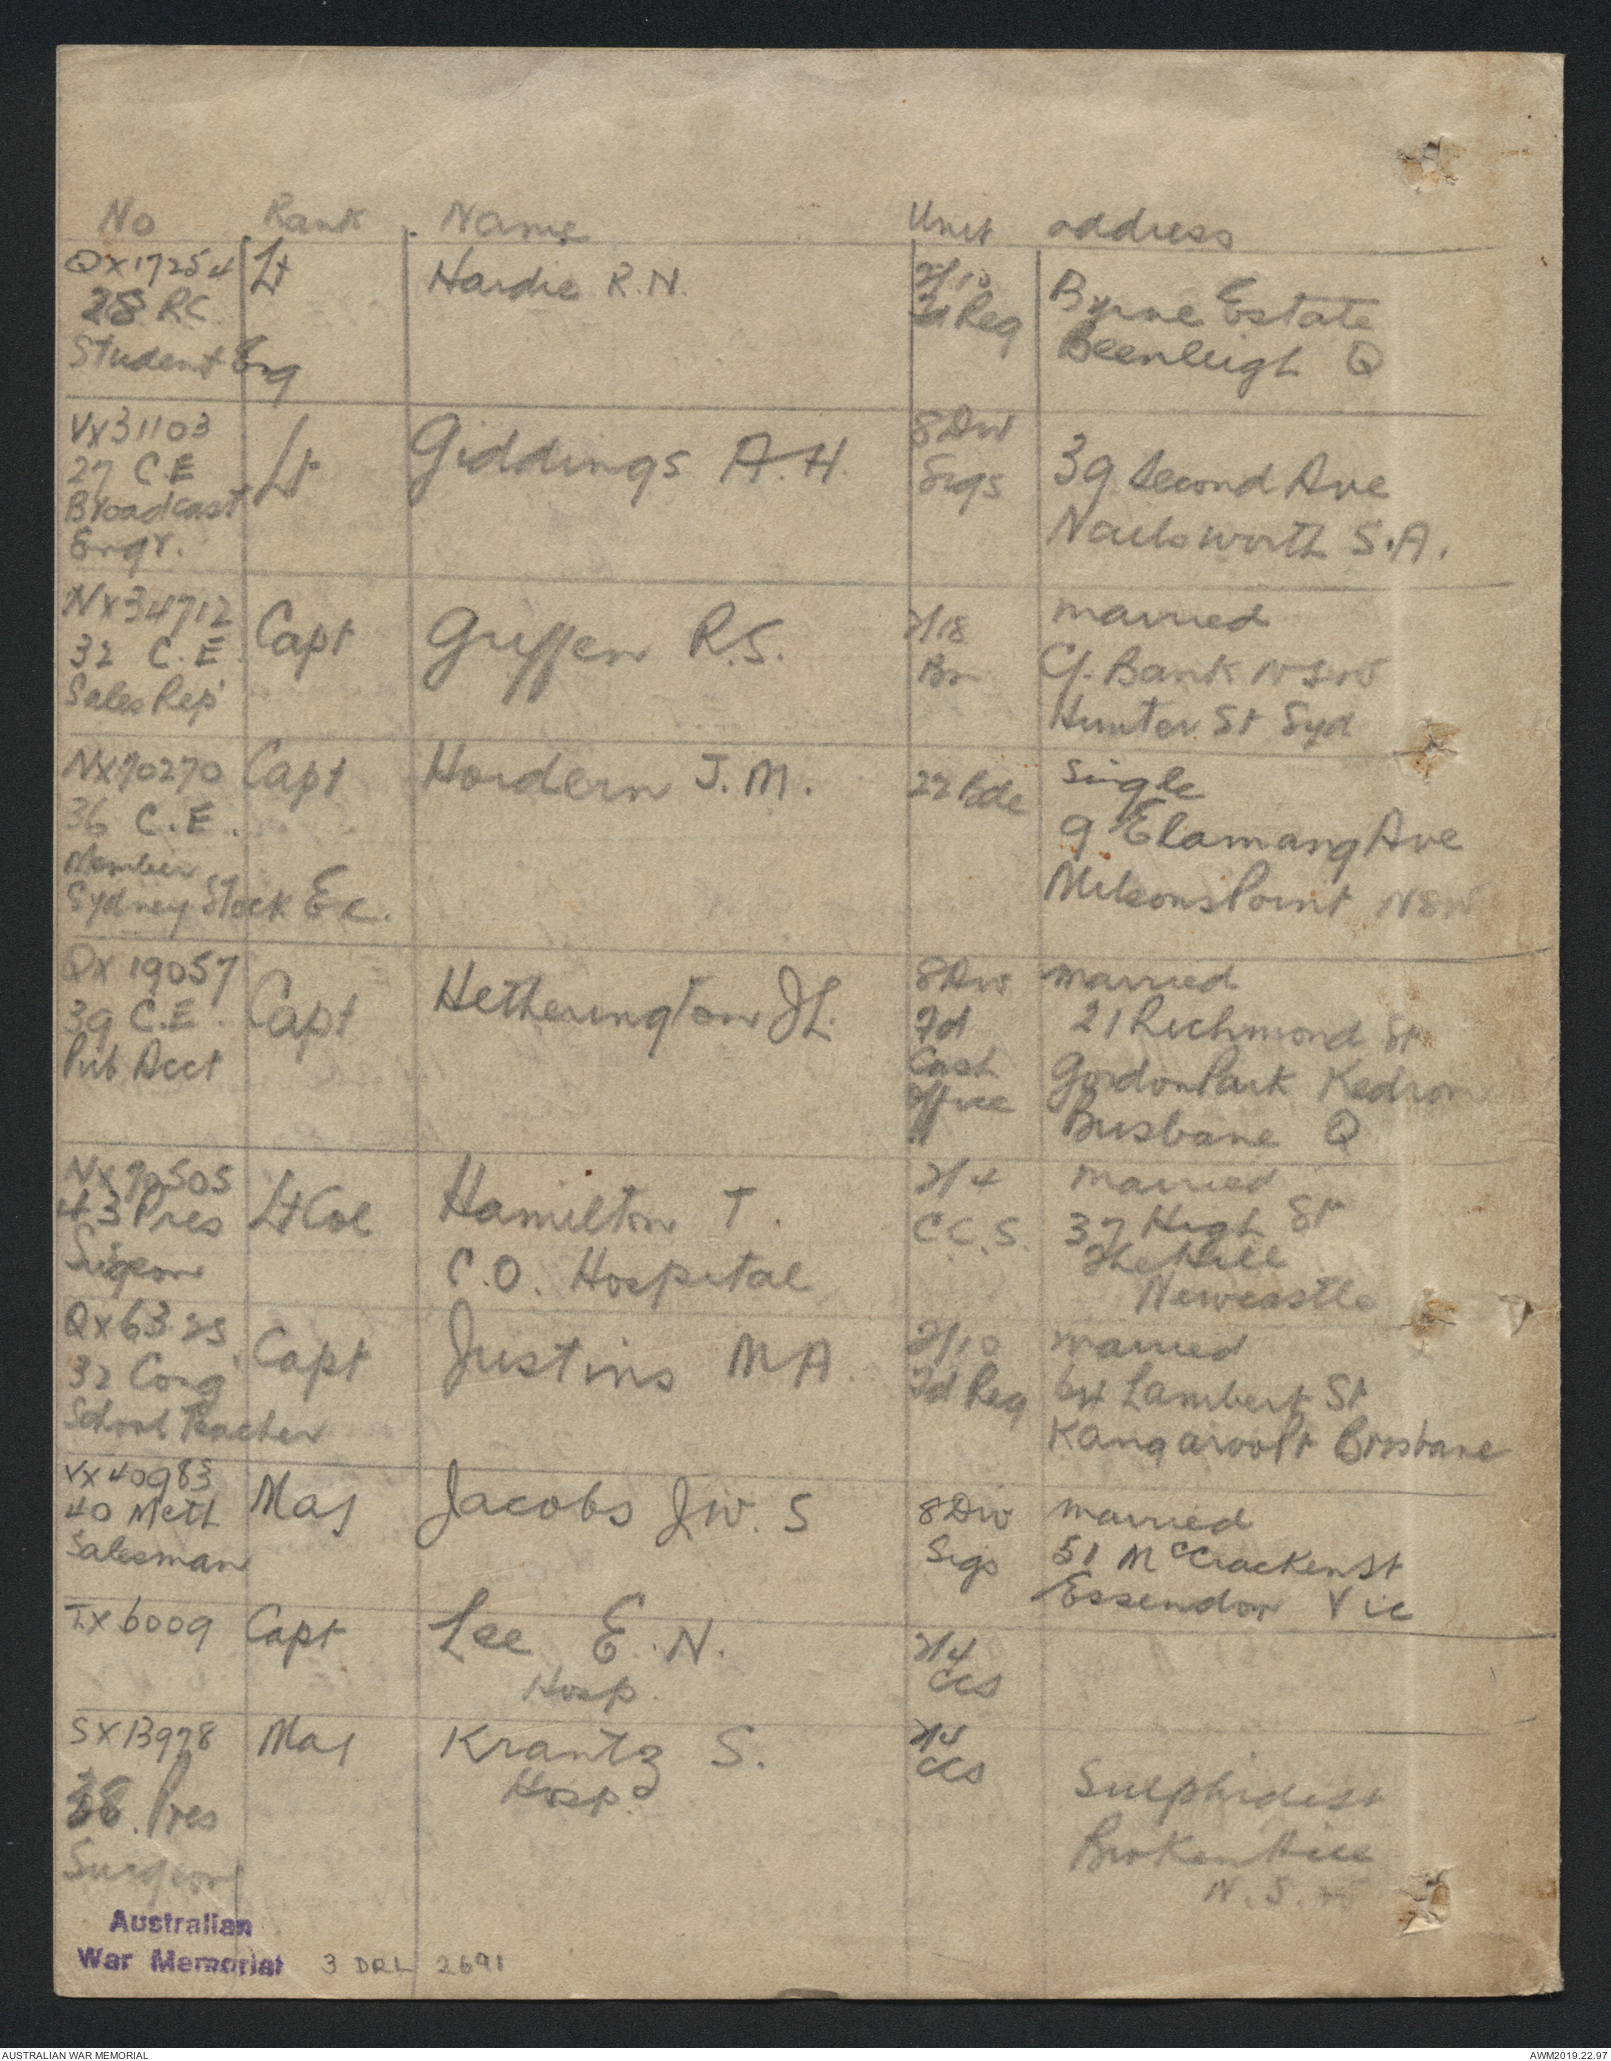 No Rank Name Unit address
QX17254 Lt Hardie R.N. 2/10 Byrne Estate
28 RC Fd Reg Beenleigh Q
Student Eng
VX31103 Lt Giddings A.H. 8Div 39 Second Ave
27 C.E Sigs Nailsworth S.A.
Broadcast
Engr.
NX34712 Capt Griffen R.S. 2/18 married
32 C.E. Bn C/- Bank NSW
Sales Rep Hunter St Syd
NX70270 Capt Hordern J.M. 22 Bde single
36 C.E. 9 Elamang Ave
Member Milsons Point NSW
Sydney Stock Ex.
QX19057 Capt Hetherington J L. 8Div married
39 C.E. Fd 21 Richmond St
Pub Acct Cash Gordon Park Kedron
Office Brisbane Q
NX70505 Lt Col Hamilton T. 2/4 married
43 Pres C.O. Hospital C.C.S. 37 High St
Surgeon The Hill
Newcastle
QX6325 Capt Justins M A. 2/10 married
32 Cong Fd Reg 64 Lambert St
School Teacher Kangaroo Pt Brisbane
VX40983 Maj Jacobs J W. S 8Div married
40 Meth Sigs 51 McCracken St
Salesman Essendon Vic
TX6009 Capt Lee E.N. 2/4
Hosp. CCS
SX13978 Maj Krantz S. 2/4
Hosp. CCS
Pres Sulphide St
Surgeon Broken Hill
N.S.W
Australian
War Memorial 3 DRL 2691
AUSTRALIAN WAR MEMORIAL AWM2019.22.97